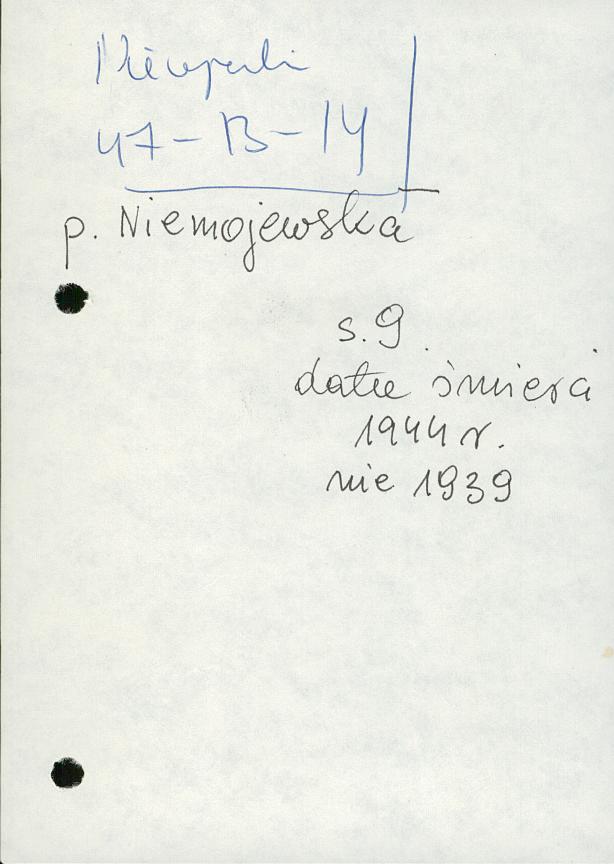 47-B-14
p. Niemojewska
s.9
datę śmierci
1944 r.
nie 1939